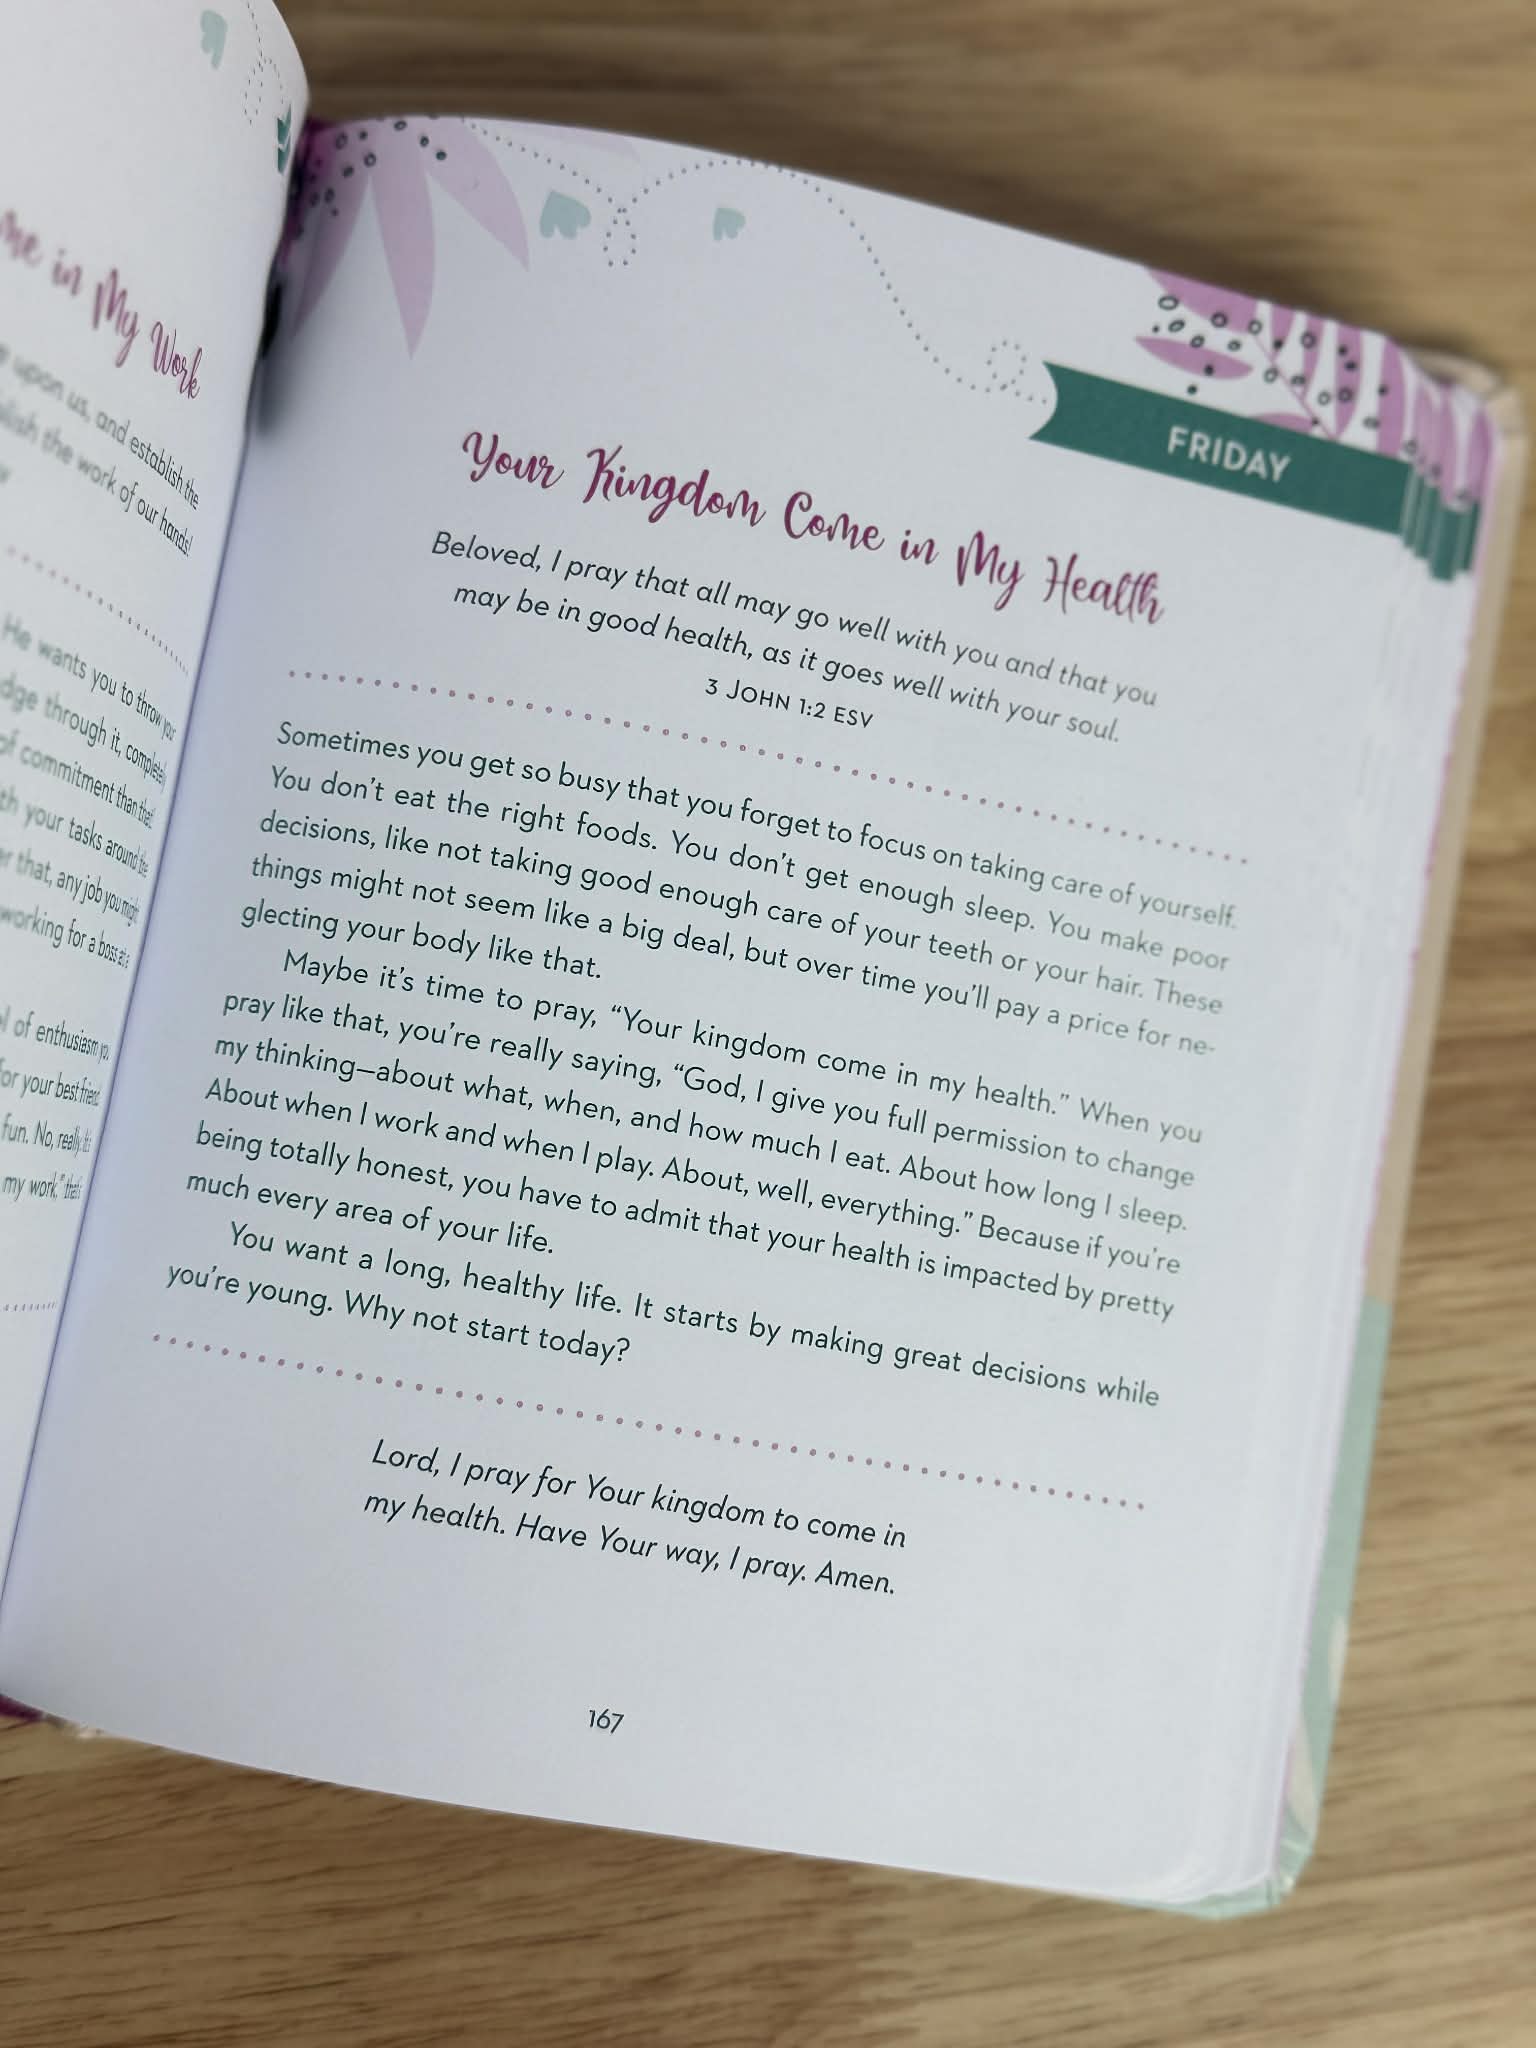 me in My Work
upon us, and establish the
the work of our hands!
He wants you to throw your
through it, completely
of commitment than that.
your tasks around the
that, any job you might
working for a boss at a
of enthusiasm you
for your best friend
fun. No, really. It's
my work," that's
FRIDAY
Your Kingdom Come in My Health
Beloved, I pray that all may go well with you and that you
may be in good health, as it goes well with your soul.
3 JOHN 1:2 ESV
Sometimes you get so busy that you forget to focus on taking care of yourself.
You don't eat the right foods. You don't get enough sleep. You make poor
decisions, like not taking good enough care of your teeth or your hair. These
things might not seem like a big deal, but over time you'll pay a price for ne-
glecting your body like that.
Maybe it's time to pray, "Your kingdom come in my health." When you
pray like that, you're really saying, "God, I give you full permission to change
my thinking—about what, when, and how much I eat. About how long I sleep.
About when I work and when I play. About, well, everything." Because if you're
being totally honest, you have to admit that your health is impacted by pretty
much every area of your life.
You want a long, healthy life. It starts by making great decisions while
you're young. Why not start today?
Lord, I pray for Your kingdom to come in
my health. Have Your way, I pray. Amen.
167